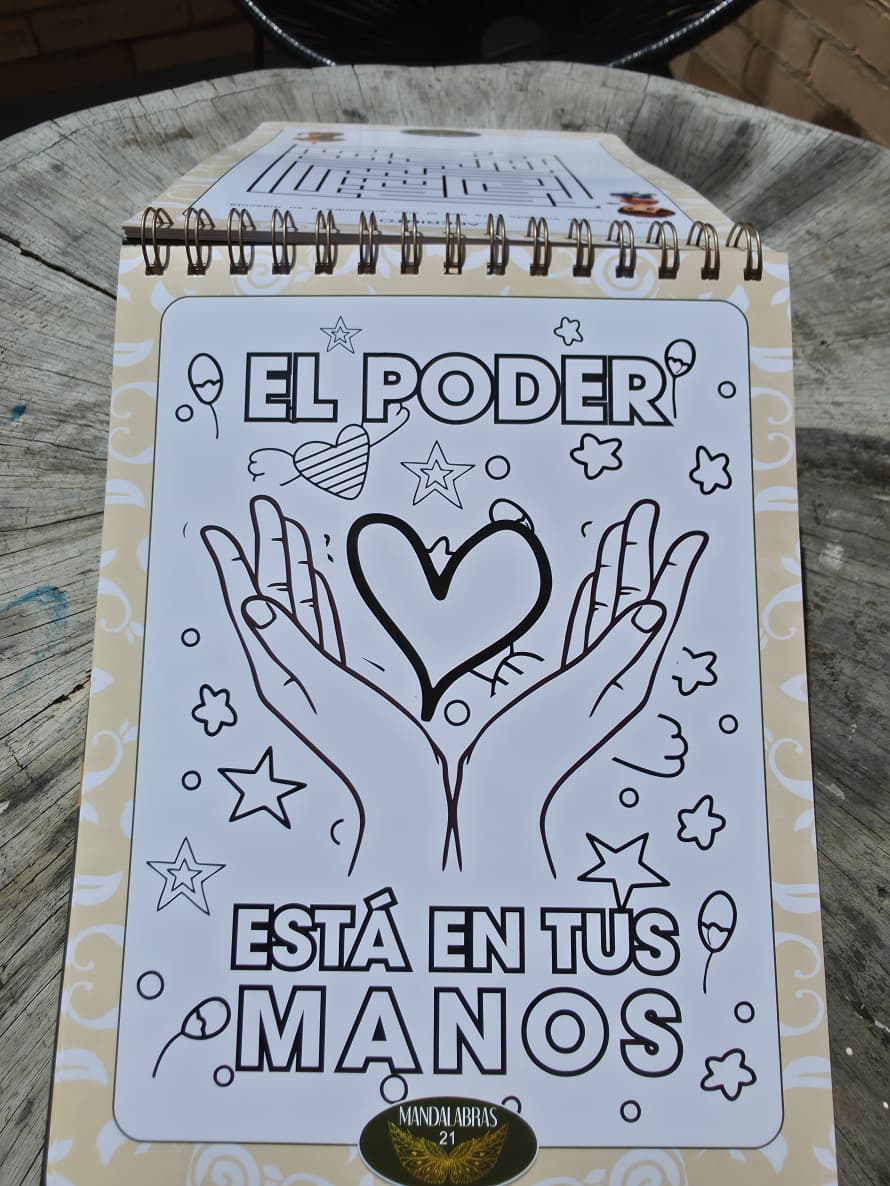 EL PODER
ESTÁ EN TUS
MANOS
MANDALABRAS
21